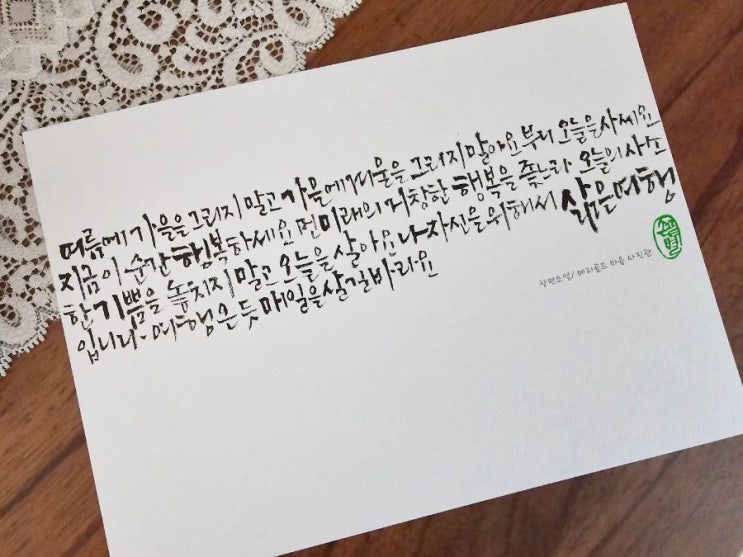 여름에 가을을 그리지 말고 가을에 겨울을 그리지 말아요 부디 오늘을 사세요
지금 이 순간 행복하세요 먼 미래의 거창한 행복을 좇느라 오늘의 사소
한 기쁨을 놓치지 말고 오늘을 살아요 나 자신을 위해서 삶은 여행
입니다. 여행하듯 매일을 살길 바라요
장편소설/ 메리골드 마음 사진관